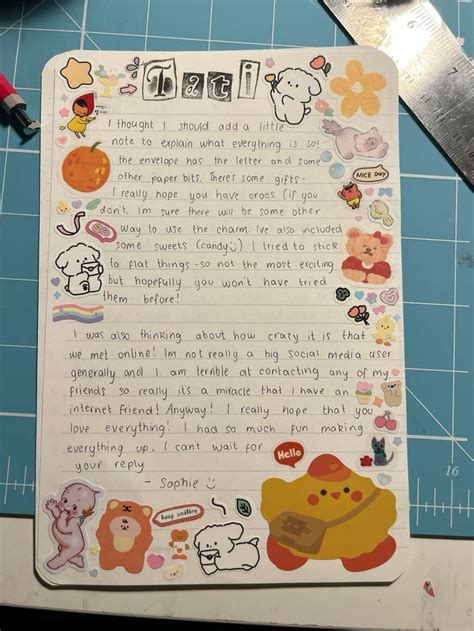 Tati
I thought I should add a little
note to explain what everything is so!
the envelope has the letter and some
other paper bits. Theres some gifts-
I really hope you have crocs (if you
don't, Im sure there will be some other
way to use the charm. I've also included
some sweets (candy) I tried to stick
to flat things - so not the most exciting
but hopefully you won't have tried
them before!
NICE DAY
I was also thinking about how crazy it is that
we met online! Im not really a big social media user
generally and I am terrible at contacting any of my
friends so really its a miracle that I have an
internet friend! Anyway! I really hope that you
love everything! I had so much fun making
everything up, I cant wait for
your reply
- Sophie
Hello
keep smiling
16